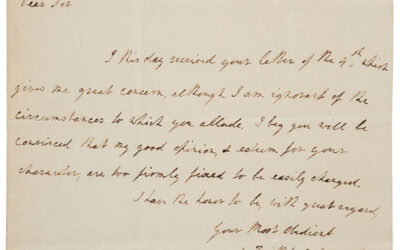 Dear Sir
I this day received your letter of the 4th, which
gives me great concern, although I am ignorant of the
circumstances to which you allude. I beg you will be
convinced that my good opinion, & esteem for your
character, are too firmly fixed to be easily changed.
I have the honor to be, with great regard,
Your Most Obedient